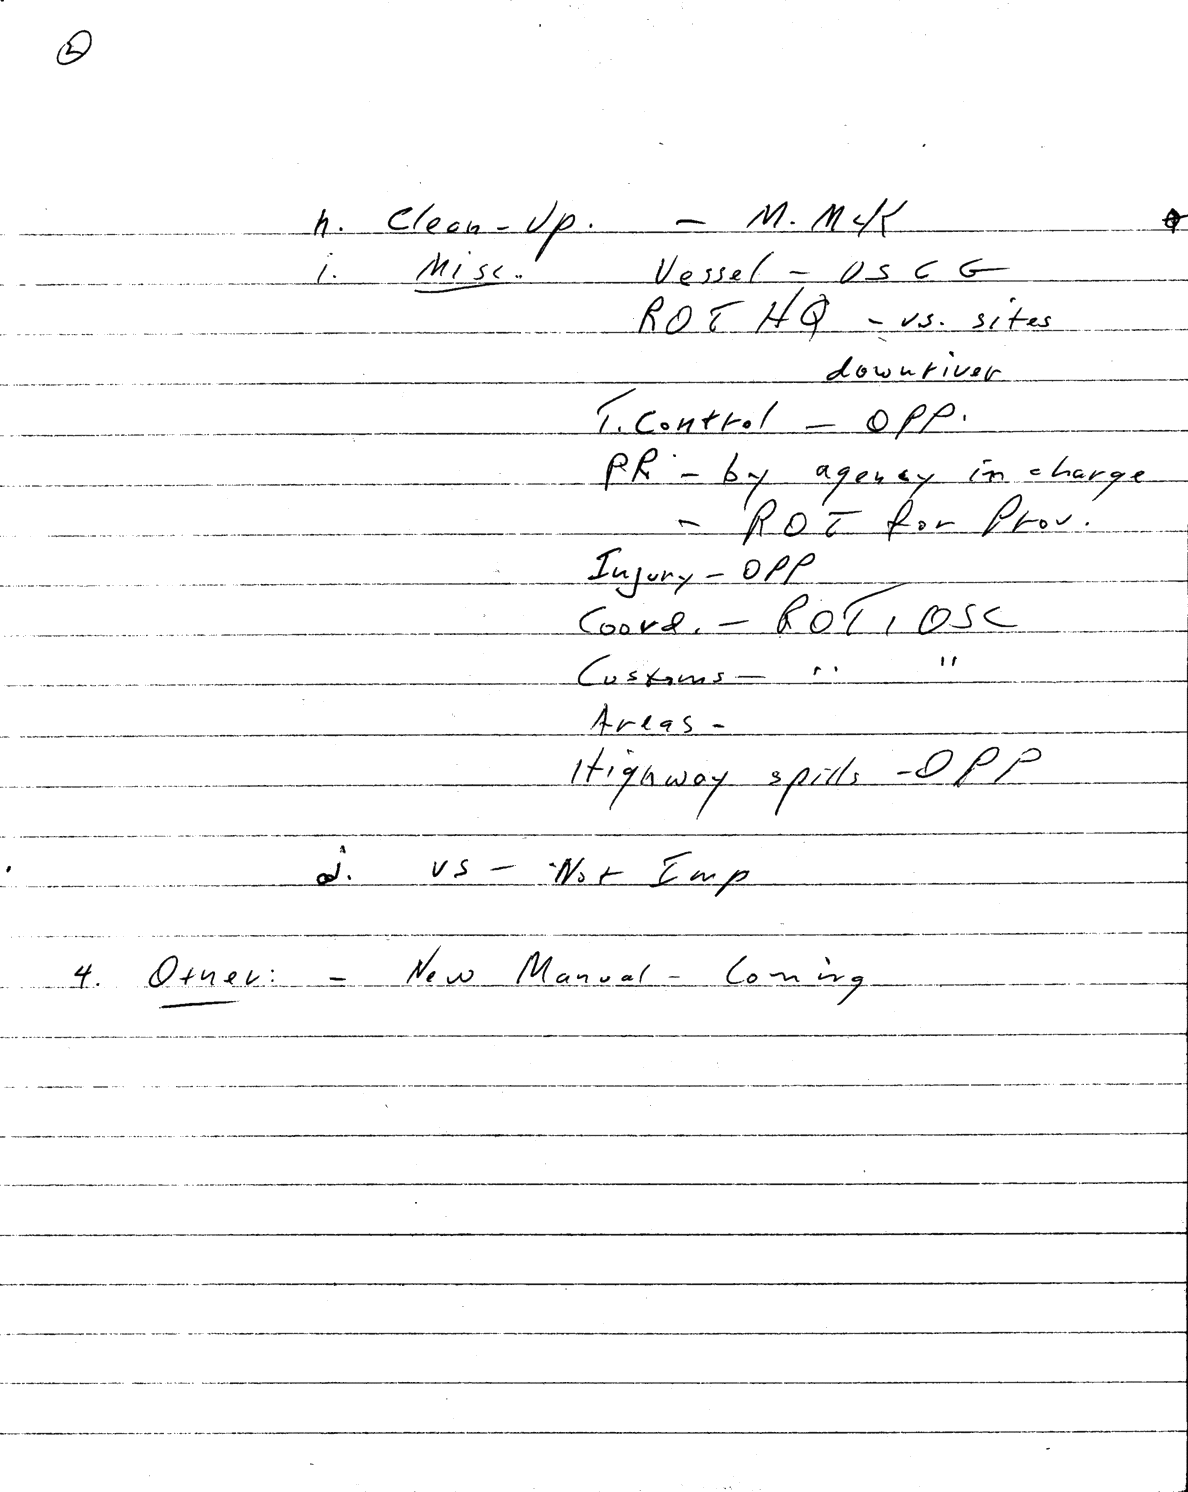 2
h. Clean-Up. – M. McK
i. Misc. Vessel – USCG
ROT HQ – vs. sites
downriver
T. Control – OPP.
PR – by agency in charge
– ROT for Prov.
Injury – OPP
Coord. – ROT, OSC
Customs – " "
Areas –
Highway spills – OPP
d. VS – Not Imp
4. Other: – New Manual – Coming